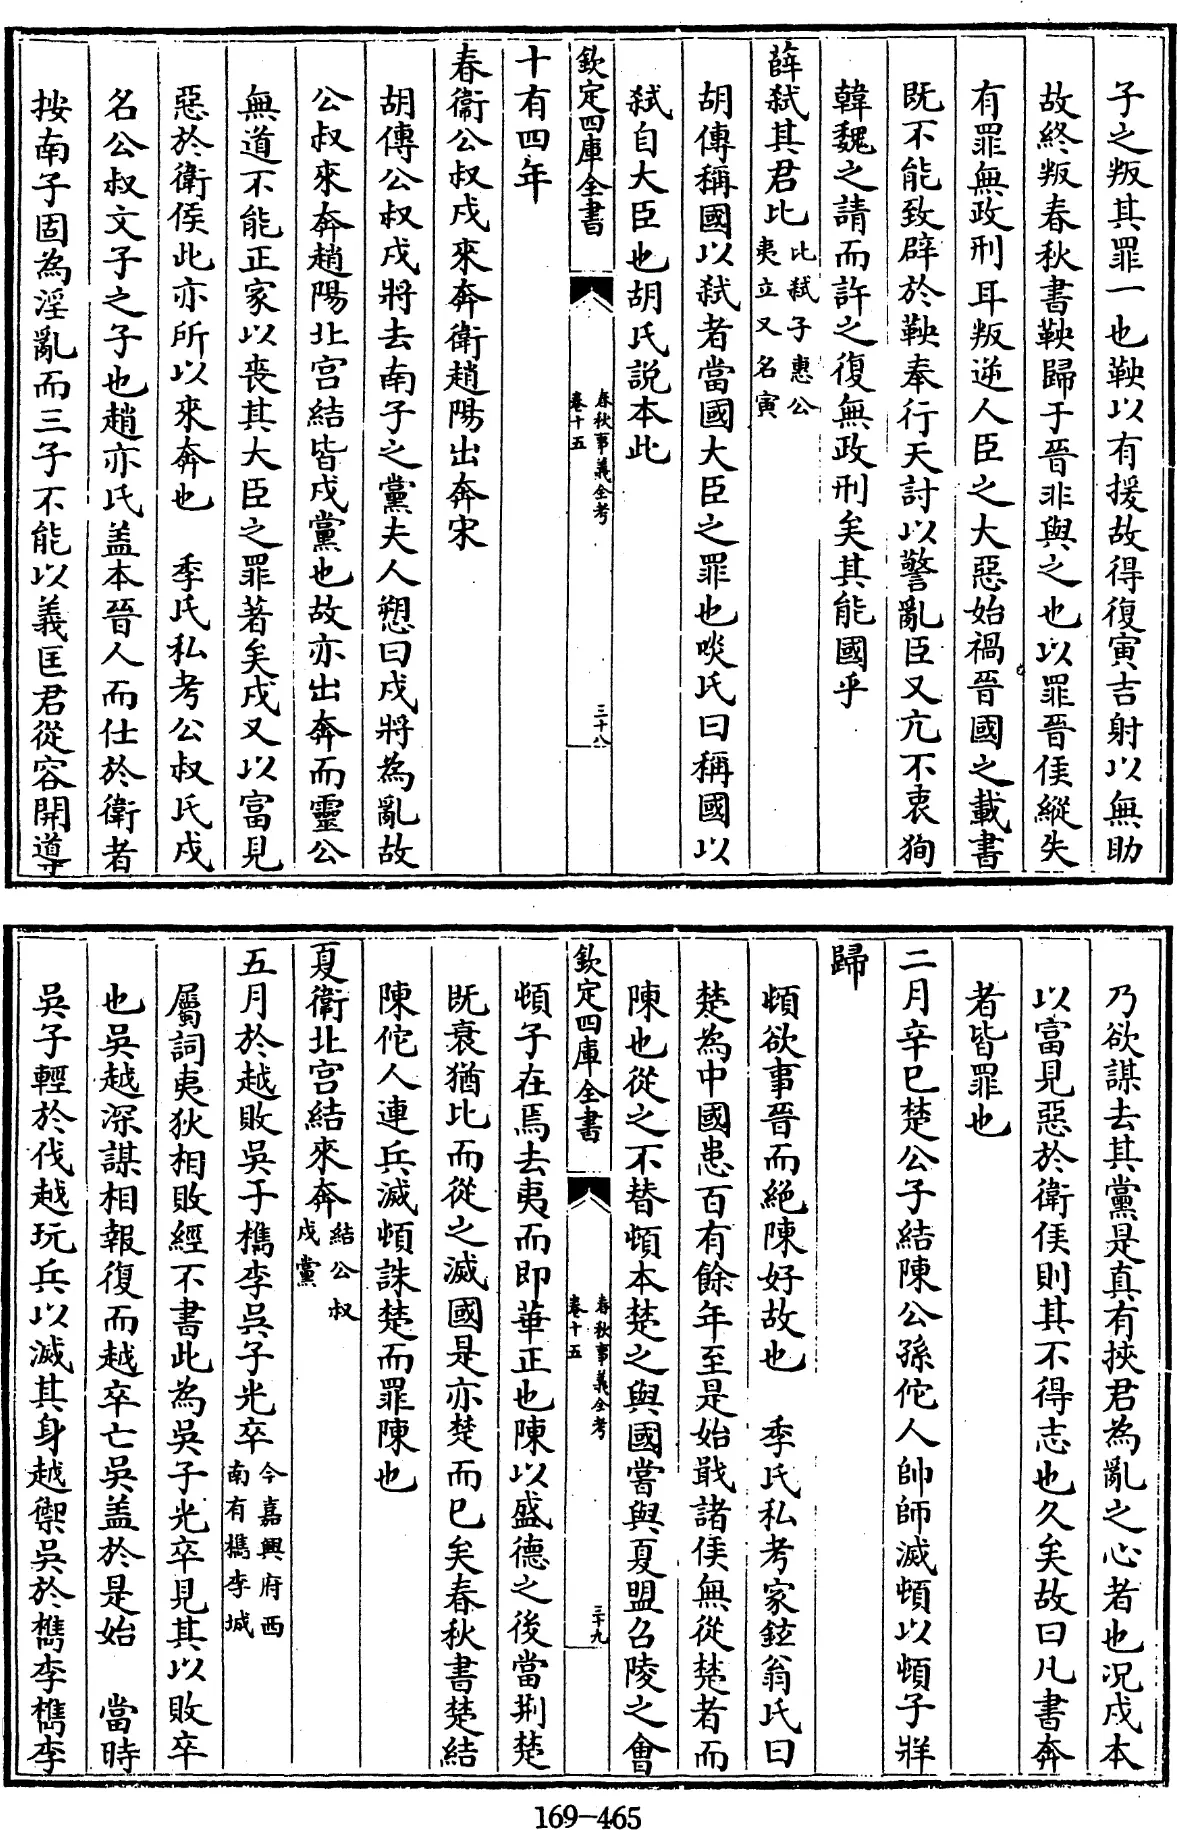 子之叛其罪一也鞅以有援故得復寅吉射以無助
故終叛春秋書鞅歸于晉非與之也以罪晉侯縱失
有罪無政刑耳叛逆人臣之大惡始禍晉國之載書
既不能致辟於鞅奉行天討以警亂臣又亢不衷狥
韓魏之請而許之復無政刑矣其能國乎
薛弑其君比比弑子惠公夷立又名寅
胡傳稱國以弑者當國大臣之罪也啖氏曰稱國以
弑自大臣也胡氏說本此
欽定四庫全書 春秋事義全考 卷十五 三十八
十有四年
春衛公叔戍來奔衛趙陽出奔宋
胡傳公叔戍將去南子之黨夫人愬曰戍將為亂故
公叔來奔趙陽北宫結皆戍黨也故亦出奔而靈公
無道不能正家以喪其大臣之罪著矣戍又以富見
惡於衛侯此亦所以來奔也 季氏私考公叔氏戍
名公叔文子之子也趙亦氏盖本晉人而仕於衛者
按南子固為淫亂而三子不能以義匡君從容開導
乃欲謀去其黨是真有挾君為亂之心者也况戍本
以富見惡於衛侯則其不得志也久矣故曰凡書奔
者皆罪也
二月辛巳楚公子結陳公孫佗人帥師滅頓以頓子牂
歸
頓欲事晉而絶陳好故也 季氏私考家鉉翁氏曰
楚為中國患百有餘年至是始戢諸侯無從楚者而
陳也從之不替頓本楚之與國嘗與夏盟召陵之會
欽定四庫全書 春秋事義全考 卷十五 三十九
頓子在焉去夷而即華正也陳以盛德之後當荆楚
既衰猶比而從之滅國是亦楚而已矣春秋書楚結
陳佗人連兵滅頓誅楚而罪陳也
夏衛北宫結來奔結公叔戍黨
五月於越敗吳于檇李吳子光卒今嘉興府西南有檇李城
屬詞夷狄相敗經不書此為吳子光卒見其以敗卒
也吳越深謀相報復而越卒亡吳盖於是始 當時
吳子輕於伐越玩兵以滅其身越禦吳於檇李檇李
169-465